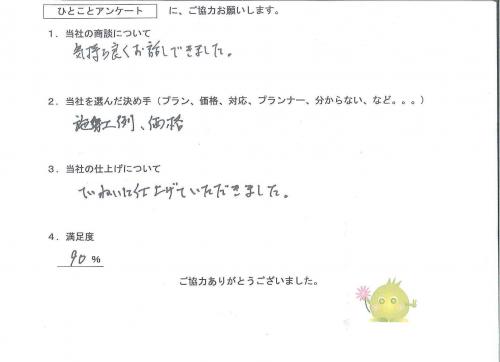 ひとことアンケート に、ご協力お願いします。
1．当社の商談について
気持ち良くお話しできました。
2．当社を選んだ決め手（プラン、価格、対応、プランナー、分からない、など。。。）
施工例、価格
3．当社の仕上げについて
ていねいに仕上げていただきました。
4．満足度
90 %
ご協力ありがとうございました。